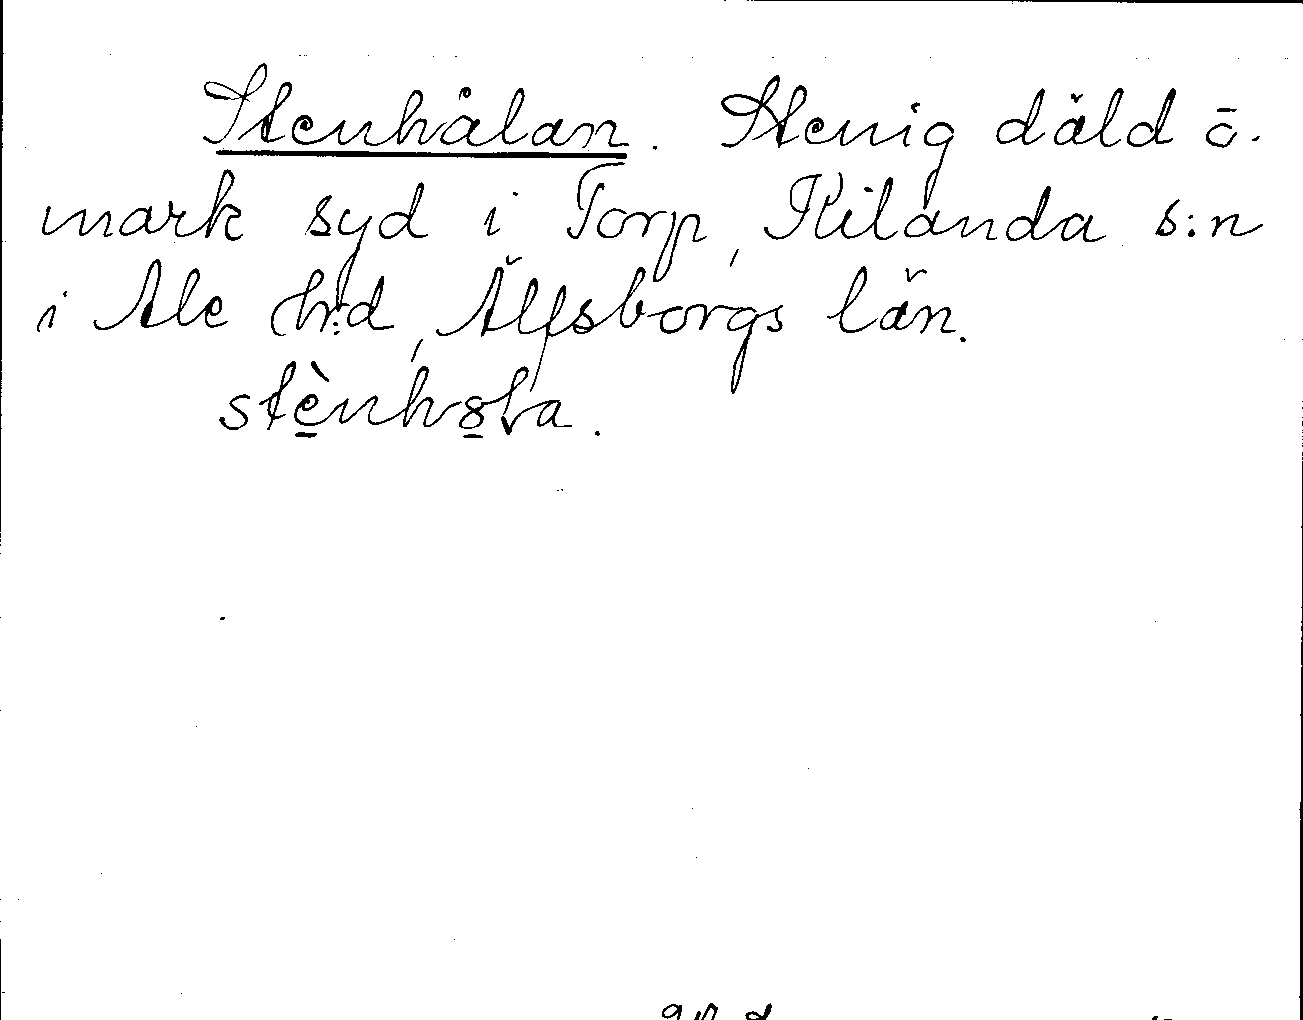 Stenhålan. Stenig däld ö.
mark syd i Torp, Kilanda s:n
i Ale h:d, Älfsborgs län.
stènhola.